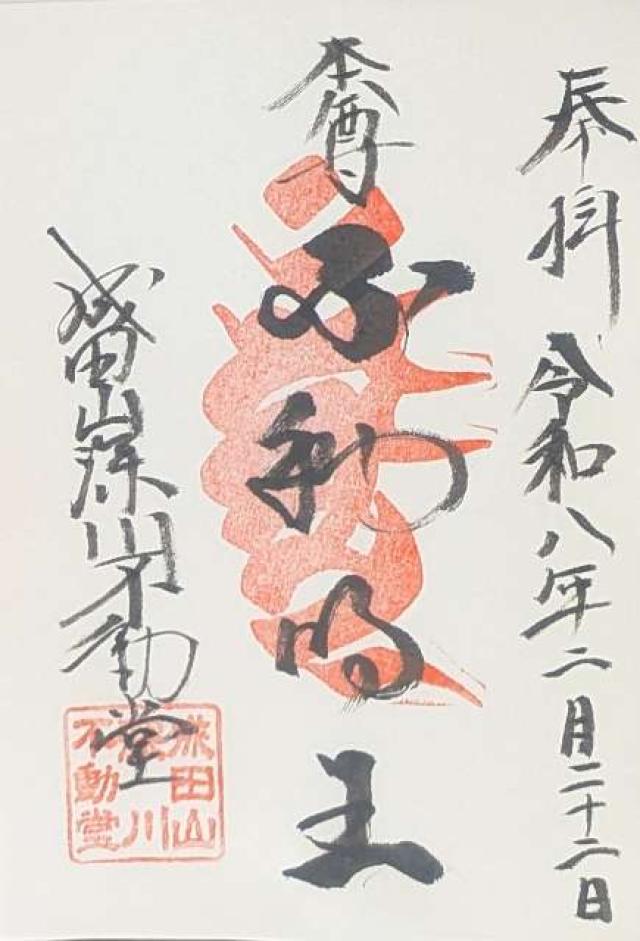 奉拝 令和八年二月二十二日
本尊
不動明王
成田山深川不動堂
成田山
深川
不動堂